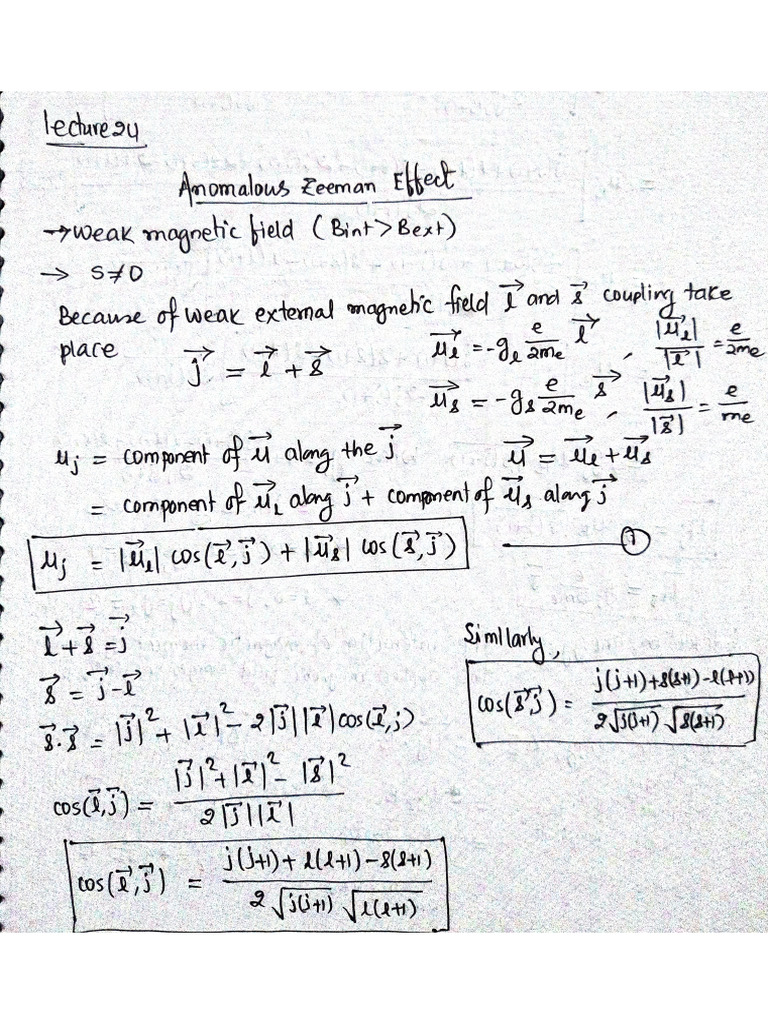 Lecture 24
Anomalous Zeeman Effect
→ Weak magnetic field (Bint > Bext)
→ s≠0
Because of weak external magnetic field l⃗ and s⃗ coupling take
place
j⃗ = l⃗ + s⃗
μ⃗l = -gl e/2me l⃗ , |μ⃗l|/|l⃗| = e/2me
μ⃗s = -gs e/2me s⃗ , |μ⃗s|/|s⃗| = e/me
μj = component of μ⃗ along the j⃗ μ⃗ = μ⃗l + μ⃗s
= component of μ⃗L along j⃗ + component of μ⃗s along j⃗
μj = |μ⃗l| cos(l⃗,j⃗) + |μ⃗s| cos(s⃗,j⃗) ——— ①
l⃗ + s⃗ = j⃗
s⃗ = j⃗ - l⃗
s⃗.s⃗ = |j⃗|² + |l⃗|² - 2|j⃗||l⃗|cos(l⃗,j)
cos(l⃗,j⃗) = |j⃗|² + |l⃗|² - |s⃗|² / 2|j⃗||l⃗|
cos(l⃗,j⃗) = j(j+1) + l(l+1) - s(s+1) / 2√j(j+1) √l(l+1)
Similarly,
cos(s⃗,j⃗) = j(j+1)+s(s+1)-l(l+1) / 2√j(j+1) √s(s+1)